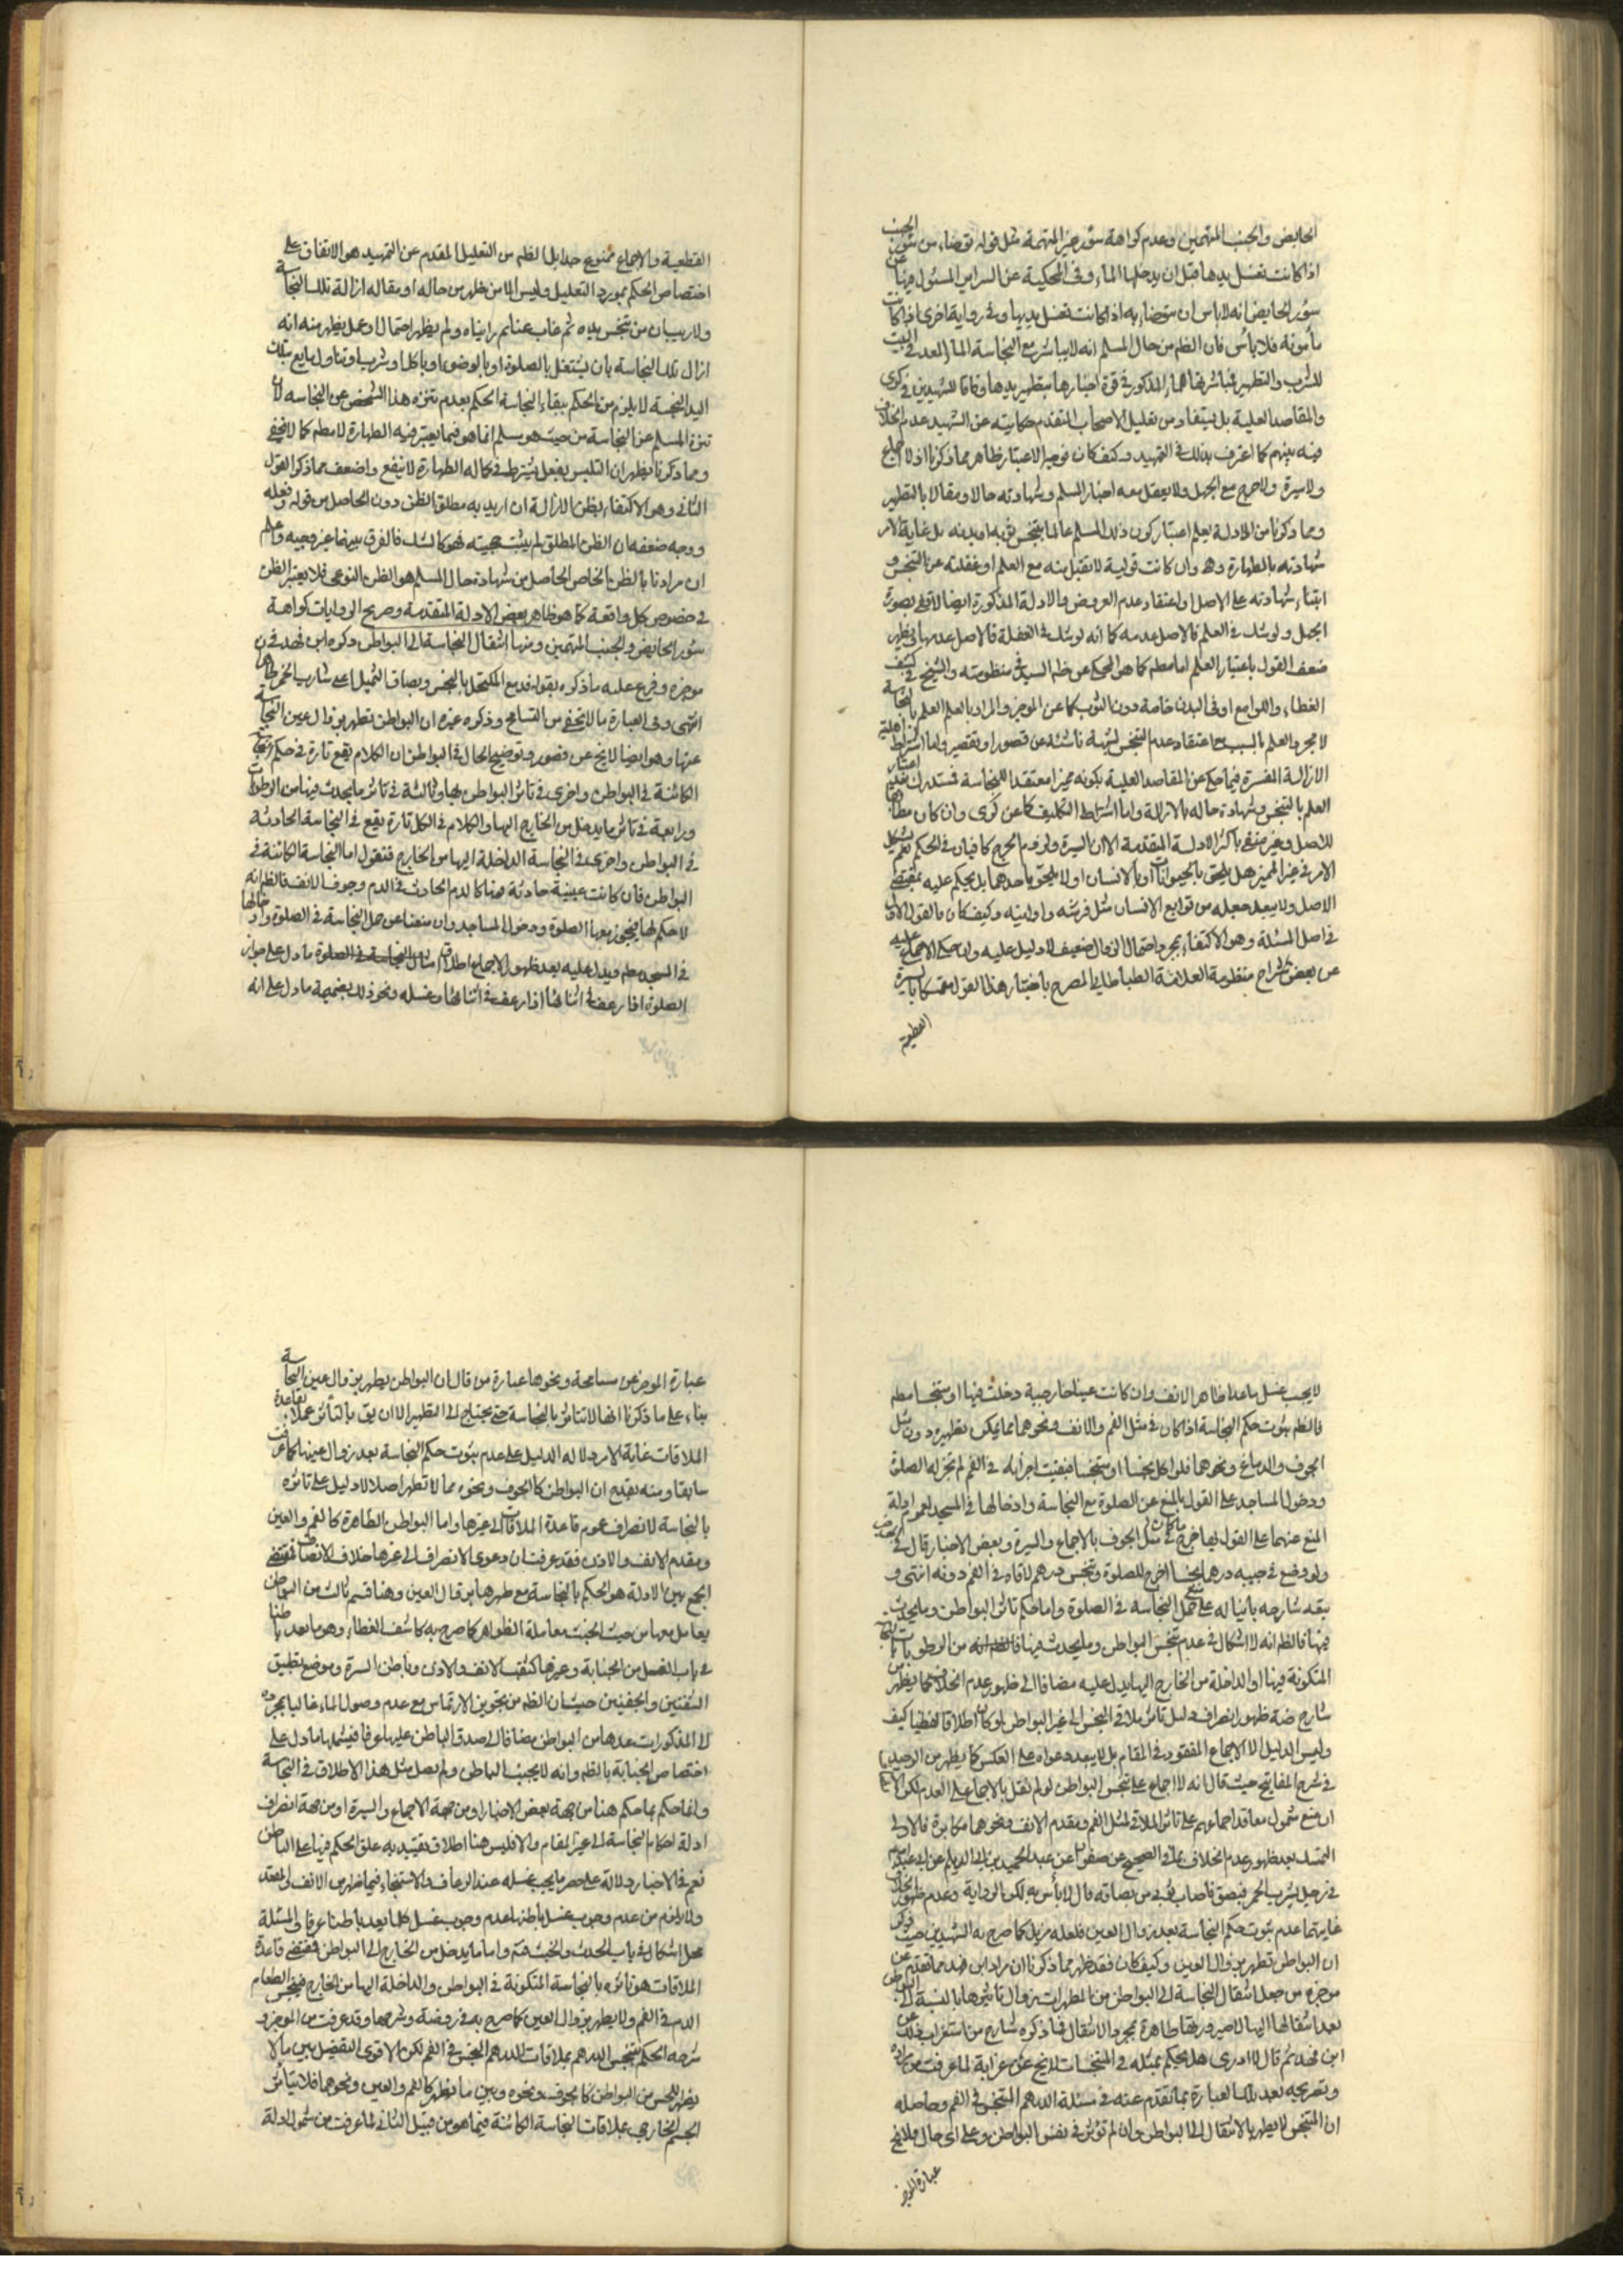 الحايض والجنب المتهمين وعدم كراهة سؤر غير المتهمة مثل قوله توضاء من سؤر الجنب
اذا كانت تغسل يدها قبل ان يدخلها الماء وفي المحكية عن السراير المسئول فيها عن
سؤر الحايض انه لا باس ان يتوضاء به اذا كانت تغسل يديها وفي رواية اخرى اذا كانت
مأمونة فلا بأس فان الظم من حال المسلم انه لا يباشر مع النجاسة الماء المعد في البيت
للشرب والتطهير فمباشرتها للماء المذكور في قوة اخبارها بتطهير يدها وفاقا للشهيدين في كرى
والمقاصد العلية بل يستفاد من تعليل الاصحاب المتقدم حكايته عن الشهيد عدم الخلاف
فيه بينهم كما اعترف بذلك في التمهيد وكيف كان فوجه الاعتبار ظاهر مما ذكرنا اذ لا اجماع
ولا سيرة ولا حرج مع الجهل ولا يعقل معه اخبار المسلم وشهادته حالا ومقالا بالتطهير
ومما ذكرنا من الادلة يعلم اعتبار كون ذلك المسلم عالما بتنجس ثوبه او بدنه بل غاية الامر
شهادته بالطهارة وهي وان كانت قولية لا تقبل منه مع العلم او غفلته عن التنجس و
ابتناء شهادته على الاصل واعتقاد عدم العروض والادلة المذكورة ايضا لا تفي بصورة
الجهل ولو شك في العلم فالاصل عدمه كما انه لو شك في الغفلة فالاصل عدمها في
ضعف القول باعتبار العلم اما مطم كما هو المحكي عن ظم السيد في منظومته والشيخ في كشف
الغطاء واللوامع او في البدن خاصة دون الثوب كما عن الموجز والمراد بالعلم العلم بالنجاسة
لا مجرد العلم بالسبب مع اعتقاد عدم التنجس لشبهة ناشئة عن قصور او تقصير واما اشتراط اهلية
الازالة المفسرة فيما حكي عن المقاصد العلية بكونه مميزا معتقدا للنجاسة فستدرك بعد اعتبار
العلم بالتنجس وشهادة حاله بالازالة واما اشتراط التكليف كما عن كرى وان كان مطابقا
للاصل وغير منفي باكثر الادلة المتقدمة الا ان السيرة ولزوم الحرج كافيان في الحكم نعم يشكل
الامر في غير المميز هل يلحق بالحيوانات او بالانسان او لا يلحق باحدهما بل يحكم عليه بمقتضى
الاصل ولا يبعد جعله من توابع الانسان مثل فرشه واوانيه وكيف كان فالقول الاول
في اصل المسئلة وهو الاكتفاء بمجرد احتمال الزوال ضعيف لا دليل عليه وان حكي الاجماع عليه
عن بعض شراح منظومة العلامة الطباطبائي المصرح باختيار هذا القول متمسكا بالسيرة
القطعية
القطعية والاجماع ممنوع جدا بل الظم من التعليل المقدم عن التمهيد هو الاتفاق على
اختصاص الحكم بمورد التعليل وليس الا من ظهر من حاله او مقاله ازالة تلك النجاسة
ولا ريب ان من تنجس يده ثم غاب عنا ثم رايناه ولم يظهر احتمالا وعمل يظهر منه انه
ازال تلك النجاسة بان يشتغل بالصلوة او بالوضوء او باكل او شرب او تناول مايع بتلك
اليد النجسة لا يلزم من الحكم ببقاء النجاسة الحكم بعدم تنزه هذا الشخص عن النجاسه لان
تنزه المسلم عن النجاسة من حيث هو مسلم انما هو فيما يعتبر فيه الطهارة لا مطم كما لا يخفى
ومما ذكرنا يظهر ان التلبس بفعل يشترط في كماله الطهارة لا ينفع واضعف مما ذكر القول
الثاني وهو الاكتفاء بظن الازالة ان اريد به مطلق الظن دون الحاصل من قوله وفعله
ووجه ضعفه ان الظن المطلق لم يثبت حجيته فهو كالشك فالفرق بينهما غير وجيه واعلم
ان مرادنا بالظن الخاص الحاصل من شهادة حال المسلم هو الظن النوعي فلا يعتبر الظن
في خصوص كل واقعة كما هو ظاهر بعض الادلة المتقدمة وصريح الروايات كراهة
سؤر الحايض والجنب المتهمين ومنها انتقال النجاسة الى البواطن ذكره ابن فهد في
موجزه وفرع عليه ما ذكره بقوله فدمع المكتحل بالنجس وبصاق الثميل اعني شارب الخمر طاهر
انتهى وفي العبارة ما لا يخفى من التسامح وذكره غيره ان البواطن تطهر بزوال عين النجاسة
عنها وهو ايضا لا يخ عن قصور وتوضيح الحال في البواطن ان الكلام يقع تارة في حكم النجاسة
الكائنة في البواطن واخرى في تاثر البواطن بها وثالثة في تاثر ما يحدث فيها من الرطوبات
ورابعة في تاثر ما يدخل من الخارج اليها والكلام في الكل تارة يقع في النجاسة الحادثة
في البواطن واخرى في النجاسة الداخلة اليها من الخارج فنقول اما النجاسة الكائنة في
البواطن فان كانت عينية حادثة هناك كالدم الحادث في الدم وجوف الانف فالظم انه
لا حكم لها فيجوز معها الصلوة ودخول المساجد وان منعنا عن حمل النجاسة في الصلوة وادخالها
في المسجد مطم ويدل عليه بعد ظهور الاجماع اطلاق ما دل على جواز
الصلوة اذا رعف في اثنائها اذا رعف في اثنائها وغسله ونحو ذلك بضميمة ما دل على انه
لا يجب غسل ما عدا ظاهر الانف وان كانت عينا خارجية دخلت فيها او متنجسا مطم
فالظم ثبوت حكم النجاسة اذا كان في مثل الفم والانف ونحوهما مما يمكن تطهيره دون مثل
الجوف والدماغ ونحوهما فلو اكل نجسا او متنجسا فبقيت اجزائه في الفم لم تجز له الصلوة
ودخول المساجد على القول بالمنع عن الصلوة مع النجاسة وادخالها في المسجد لعموم ادلة
المنع عنهما على القول بها خرج ما كان في مثل الجوف بالاجماع والسيرة وبعض الاخبار قال في
ولو وضع في جيبه درهما نجسا اخرج للصلوة وتنجس درهم لاقاه في الفم دونه انتهى و
بقه شارحه بانيا له على منع حمل النجاسه في الصلوة واما حكم تاثر البواطن وما يحدث
فيها فالظم انه لا اشكال في عدم تنجس البواطن وما يحدث فيها من الرطوبات بالنجاسة
المتكونة فيها او الداخلة من الخارج اليها يدل عليه مضافا الى ظهور عدم الخلاف فيما يظهر من
شارح ضة ظهور انصراف دليل تاثر ملاقي النجس الى غير البواطن لو كان اطلاقا لفظيا كيف
وليس الدليل الا الاجماع المفقود في المقام بل لا يبعد دعواه على العكس كما يظهر من الوحيد
في شرح المفاتيح حيث قال انه لا اجماع على تنجس البواطن لو لم نقل بالاجماع على العدم لكن الانصاف
ان منع شمول معاقد اجماعهم على تاثر الملاقي لمثل الفم ومقدم الانف ونحوهما مكابرة فالاولى
التمسك بعد ظهور عدم الخلاف بما في الصحيح عن صفوان عن عبد الحميد بن ابي الديلم عن ابي عبد الله
في رجل يشرب الخمر فيبصق فاصاب ثوبي من بصاقه قال لا بأس به لكن الرواية وعدم ظهور الخلاف
غايتهما عدم ثبوت حكم النجاسة بعد زوال العين فلعله مزيل كما صرح به الشهيدين حيث ذكرا
ان البواطن تطهر بزوال العين وكيف كان فقد ظهر مما ذكرنا ان مراد ابن فهد مما تقدم عن
موجزه من جعل انتقال النجاسة الى البواطن من المطهرات زوال تاثيرها بالنسبة الى البواطن
بعد انتقالها اليها لا صيرورتها طاهرة بمجرد الانتقال فما ذكره شارح من استغراب ذلك عن
ابن فهد ثم قال لا ادري هل يحكم بمثله في المتنجسات لا يخ عن غرابة لما عرفت من مراده
وتصريحه بعد تلك العبارة بما تقدم عنه في مسئلة الدرهم المتنجس في الفم وحاصله
ان المتنجس لا يطهر بالانتقال الى البواطن وان لم تؤثر في نفس البواطن وعلى اى حال فلا يخ
عبارة الموجز
عبارة الموجز عن مسامحة ونحوها عبارة من قال ان البواطن يطهر بزوال عين النجاسة
بناء على ما ذكرنا انها لا تتاثر بالنجاسة حتى يحتاج الى التطهير الا ان يق بالتاثر عملا بقاعدة
الملاقات غاية الامر دلالة الدليل على عدم ثبوت حكم النجاسة بعد زوال عينها كما عرفت
سابقا ومنه يقدح ان البواطن كالجوف ونحوه مما لا تطهر اصلا لا دليل على تاثره
بالنجاسة لانصراف عموم قاعدة الملاقات الى غيرها واما البواطن الظاهرة كالفم والعين
ومقدم الانف والاذن فقد عرفت ان دعوى الانصراف الى غيرها خلاف الانصاف فمقتضى
الجمع بين الادلة هو الحكم بالنجاسة مع طهرها بزوال العين وهنا قسم ثالث من البواطن
يعامل معها من حيث الخبث معاملة الظواهر كما صرح به كاشف الغطاء وهو ما يعد باطنا
في باب الغسل من الجنابة وغيرها كثقب الانف والاذن وباطن السرة وموضع تطبيق
الشفتين والجفنين حيث ان الظم من تجويز الارتماس مع عدم وصول الماء غالبا بمجرده
الى المذكورات عدها من البواطن مضافا الى صدق الباطن عليها عرفا فيشملها ما دل على
اختصاص الجنابة بالظم وانه لا يجنب الباطن ولم يصل مثل هذا الاطلاق في النجاسة
وانما حكم بما حكم هنا من جهة بعض الاخبار او من جهة الاجماع والسيرة او من جهة انصراف
ادلة احكام النجاسة الى غير المقام والا فليس هنا اطلاق نقيد به علق الحكم فيها على الباطن
نعم في الاخبار دلالة على حصر ما يجب غسله عند الرعاف والاستنجاء فيما ظهر من الانف والمقعد
ولا يلزم من عدم وجوب غسل باطنها عدم وجوب غسل كلما يعد باطنا عرفا في المسئلة
محل اشكال في باب الحدث والخبث فتم واما ما يدخل من الخارج الى البواطن فمقتضى قاعدة
الملاقات هو تاثره بالنجاسة المتكونة في البواطن والداخلة اليها من الخارج فينجس الطعام
الذي في الفم ولا يطهر بزوال العين كما صرح به في روضة وشرحها وقد عرفت من الموجز و
شرحه الحكم بتنجس الدرهم بملاقات الدرهم النجس في الفم لكن الاقوى التفصيل بين ما لا
يظهر للحس من البواطن كالجوف ونحوه وبين ما يظهر كالفم والعين ونحوهما فلا يتاثر
الجسم الخارجي بملاقات النجاسة الكائنة فيما هو من قبيل الثاني لما عرفت من شمول ادلة